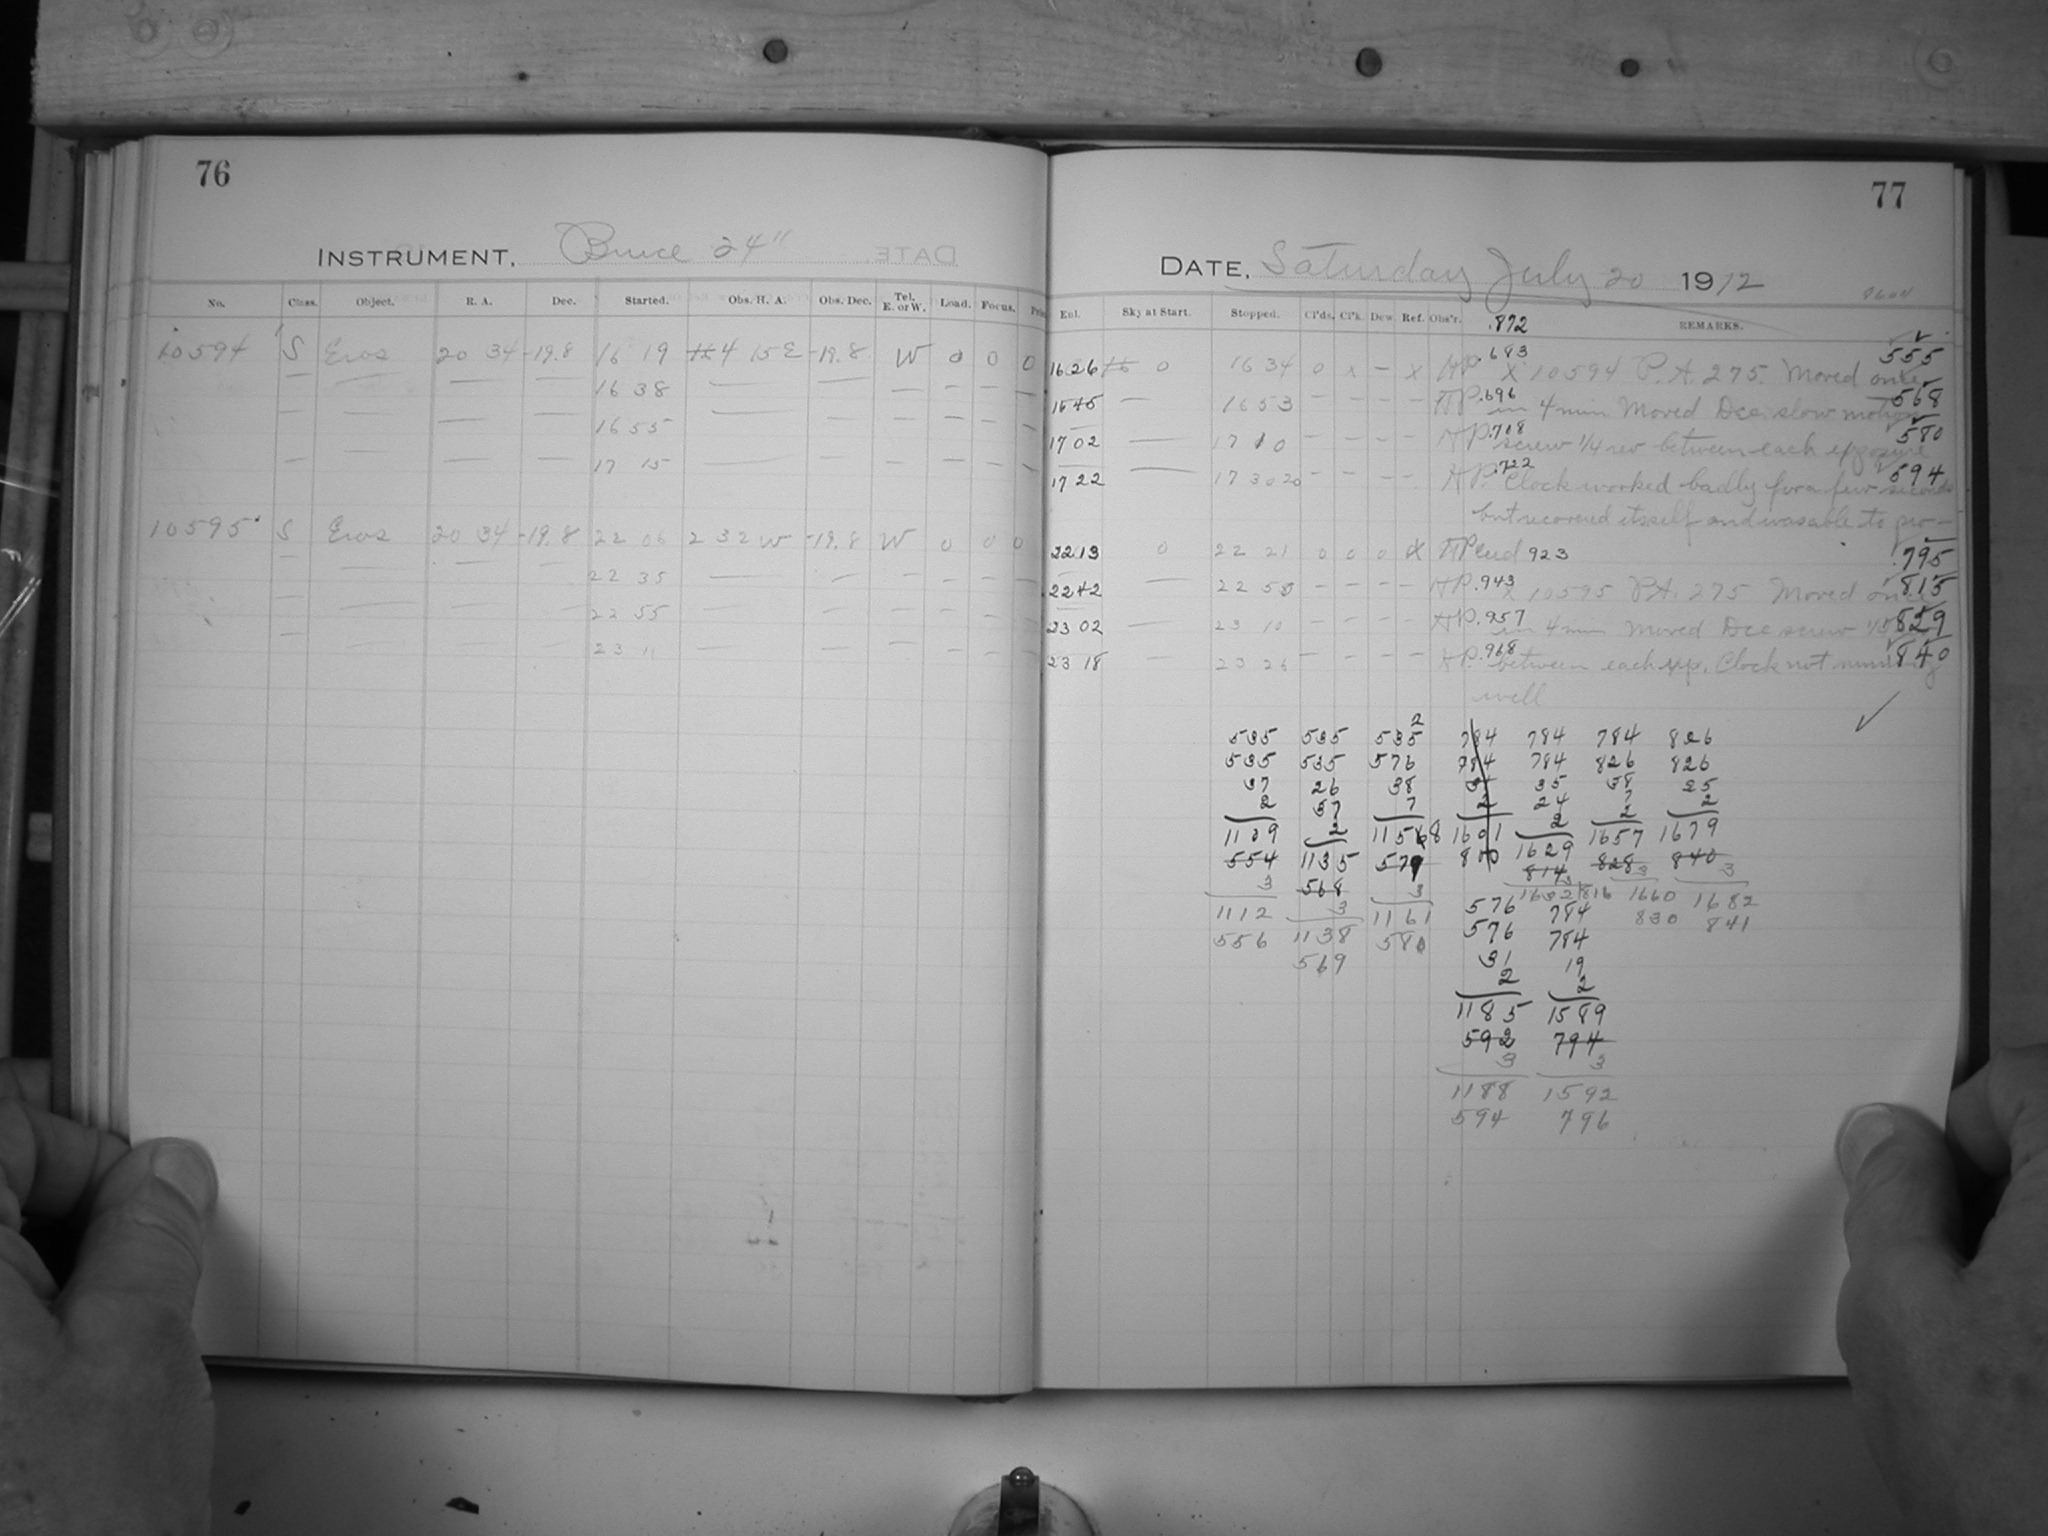 76
INSTRUMENT, Bruce 24"
No. Class. Object. R. A. Dec. Started. Obs. H. A. Obs. Dec. Tel. E. or W. Load. Focus.
10594 S Eros 20 34 -19.8 16 19 4 15 E -19.8 W 0 0 0
— — — — 16 38 — — — — — —
— — — — 16 55 — — — — — —
— — — — 17 15 — — — — — —
10595 S Eros 20 34 -19.8 22 06 2 32 W -19.8 W 0 0 0
— — — — 22 35 — — — — — —
— — — — 22 55 — — — — — —
— — — — 23 11 — — — — — —
77
DATE, Saturday July 20 1912
Enl. Sky at Start. Stopped. Cl'ds. Cl'k. Dew. Ref. Obs'r. REMARKS.
.872
16 26 0 16 34 0 x — x HP .683 x 10594 P.A. 275. Moved once 555
16 45 — 16 53 — — — — HP .696 in 4 min Moved Dec. slow motion 568
17 02 — 17 10 — — — — HP .708 screw 1/4 rev between each exposure 580
17 22 — 17 30 20 — — — — HP .722 Clock worked badly for a few seconds 594
but recovered itself and was able to pro-
22 13 0 22 21 0 0 0 x HP ceed 923 .795
22 42 — 22 50 — — — — HP .943 x 10595 P.A. 275 Moved once 815
23 02 — 23 10 — — — — HP .957 in 4 min Moved Dec screw 1/4 829
23 18 — 23 26 — — — — HP .968 between each exp. Clock not running 840
well
2
535 535 535 784 784 784 826
535 535 576 784 784 826 826
37 26 38 31 35 38 25
2 37 7 2 24 7 2
1109 2 11568 1601 2 2 1679
554 1135 579 800 1629 1657 840
3 568 3 814 828 3
1112 3 1161 3 3 1682
556 1138 580 1632 816 1660 841
569 830
576 784
576 784
31 19
2 2
1185 1589
592 794
3 3
1188 1592
594 796